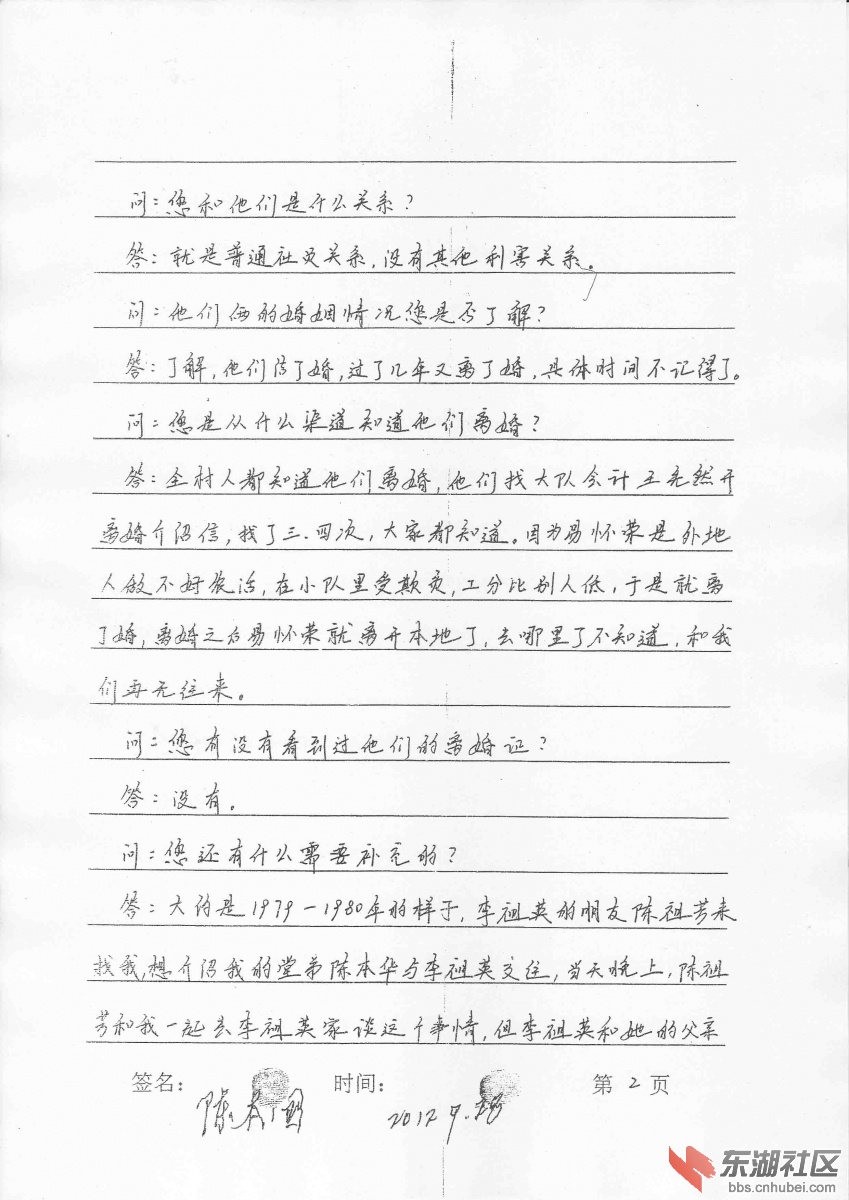 问：您和他们是什么关系？
答：就是普通社员关系，没有其他利害关系。
问：他们俩的婚姻情况您是否了解？
答：了解，他们结了婚，过了几年又离了婚，具体时间不记得了。
问：您是从什么渠道知道他们离婚？
答：全村人都知道他们离婚，他们找大队会计王先然开
离婚介绍信，找了三、四次，大家都知道。因为易怀荣是外地
人故不好展活，在小队里受欺负，工分比别人低，于是就离
了婚，离婚之后易怀荣就离开本地了，去哪里了不知道，和我
们再无往来。
问：您有没有看到过他们的离婚证？
答：没有。
问：您还有什么需要补充的？
答：大约是1979－1980年的样子，李祖英的朋友陈祖芳来
找我，想介绍我的堂弟陈本华与李祖英交往，当天晚上，陈祖
芳和我一起去李祖英家谈这个事情，但李祖英和她的父亲
签名： 陈 时间： 2012 7. 第 2 页
东湖社区
bbs.cnhubei.com